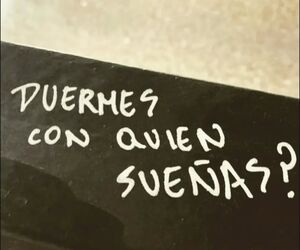 DUERMES
CON QUIEN
SUEÑAS?